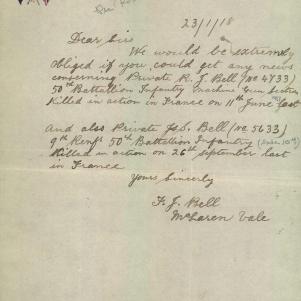 23/1/18
Dear Sir
We would be extremely
obliged if you could get any news
concerning Private R. J. Bell (No 4733)
50th Battallion Infantry Machine Gun Section
Killed in action in France on 11th June last
And also Private Bell (No 5633)
9th Renfts 50th Battallion Infantry
Killed in action on 26th September last
in France
Yours Sincerely
F. J. Bell
McLaren Vale